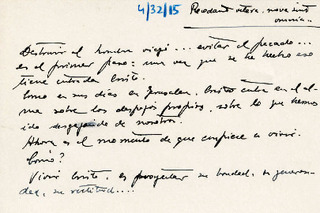 4/32/15
Recedant vetera, nova sint
omnia.
Destruir el hombre viejo... evitar el pecado...
es el primer paso: una vez que se ha hecho eso
tiene entrada Cristo.
Como en sus días en Jerusalén, Cristo entra en el al-
ma sobre los despojos propios, sobre lo que hemos
ido desgajando de nosotros.
Ahora es el momento de que empiece a vivir.
Cómo?
Vivir Cristo, es proyectar su bondad, su generosi-
dad, su rectitud....